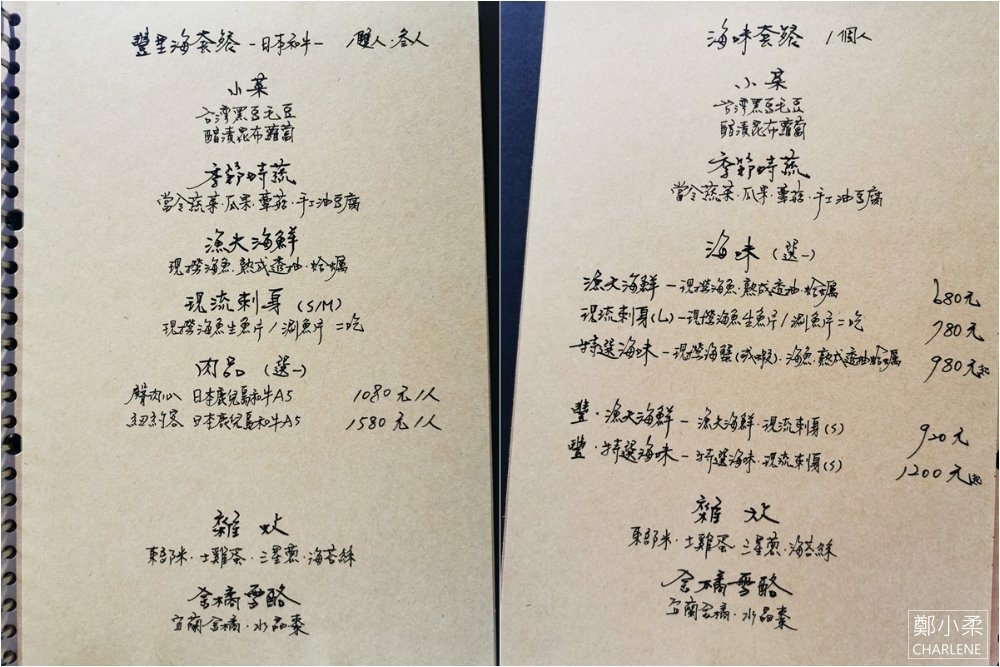 豐里海套餐 -日本和牛- /雙人·叁人
小菜
台灣黑豆毛豆
醋漬昆布蘿蔔
季節時蔬
當令蔬菜·瓜果·蕈菇·手工油豆腐
漁夫海鮮
現撈海魚·熟成透抽·蛤蠣
現流刺身 (S/M)
現撈海魚生魚片/涮魚片 二吃
肉品 (選一)
臀肉心 日本鹿兒島和牛A5 1080元/人
紐約客 日本鹿兒島和牛A5 1580元/人
雜炊
東部米·土雞蛋·三星蔥·海苔絲
金橘雪酪
宜蘭金橘·水晶棗
海味套餐 /個人
小菜
台灣黑豆毛豆
醋漬昆布蘿蔔
季節時蔬
當令蔬菜·瓜果·蕈菇·手工油豆腐
海味 (選一)
漁夫海鮮-現撈海魚·熟成透抽·蛤蠣 680元
現流刺身(L)-現撈海魚生魚片/涮魚片 二吃 780元
特選海味-現撈海蟹(或蝦)·海魚·熟成透抽·蛤蠣 980元起
豐·漁夫海鮮-漁夫海鮮·現流刺身(S) 920元
豐·特選海味-特選海味·現流刺身(S) 1200元起
雜炊
東部米·土雞蛋·三星蔥·海苔絲
金橘雪酪
宜蘭金橘·水晶棗
鄭小柔
CHARLENE